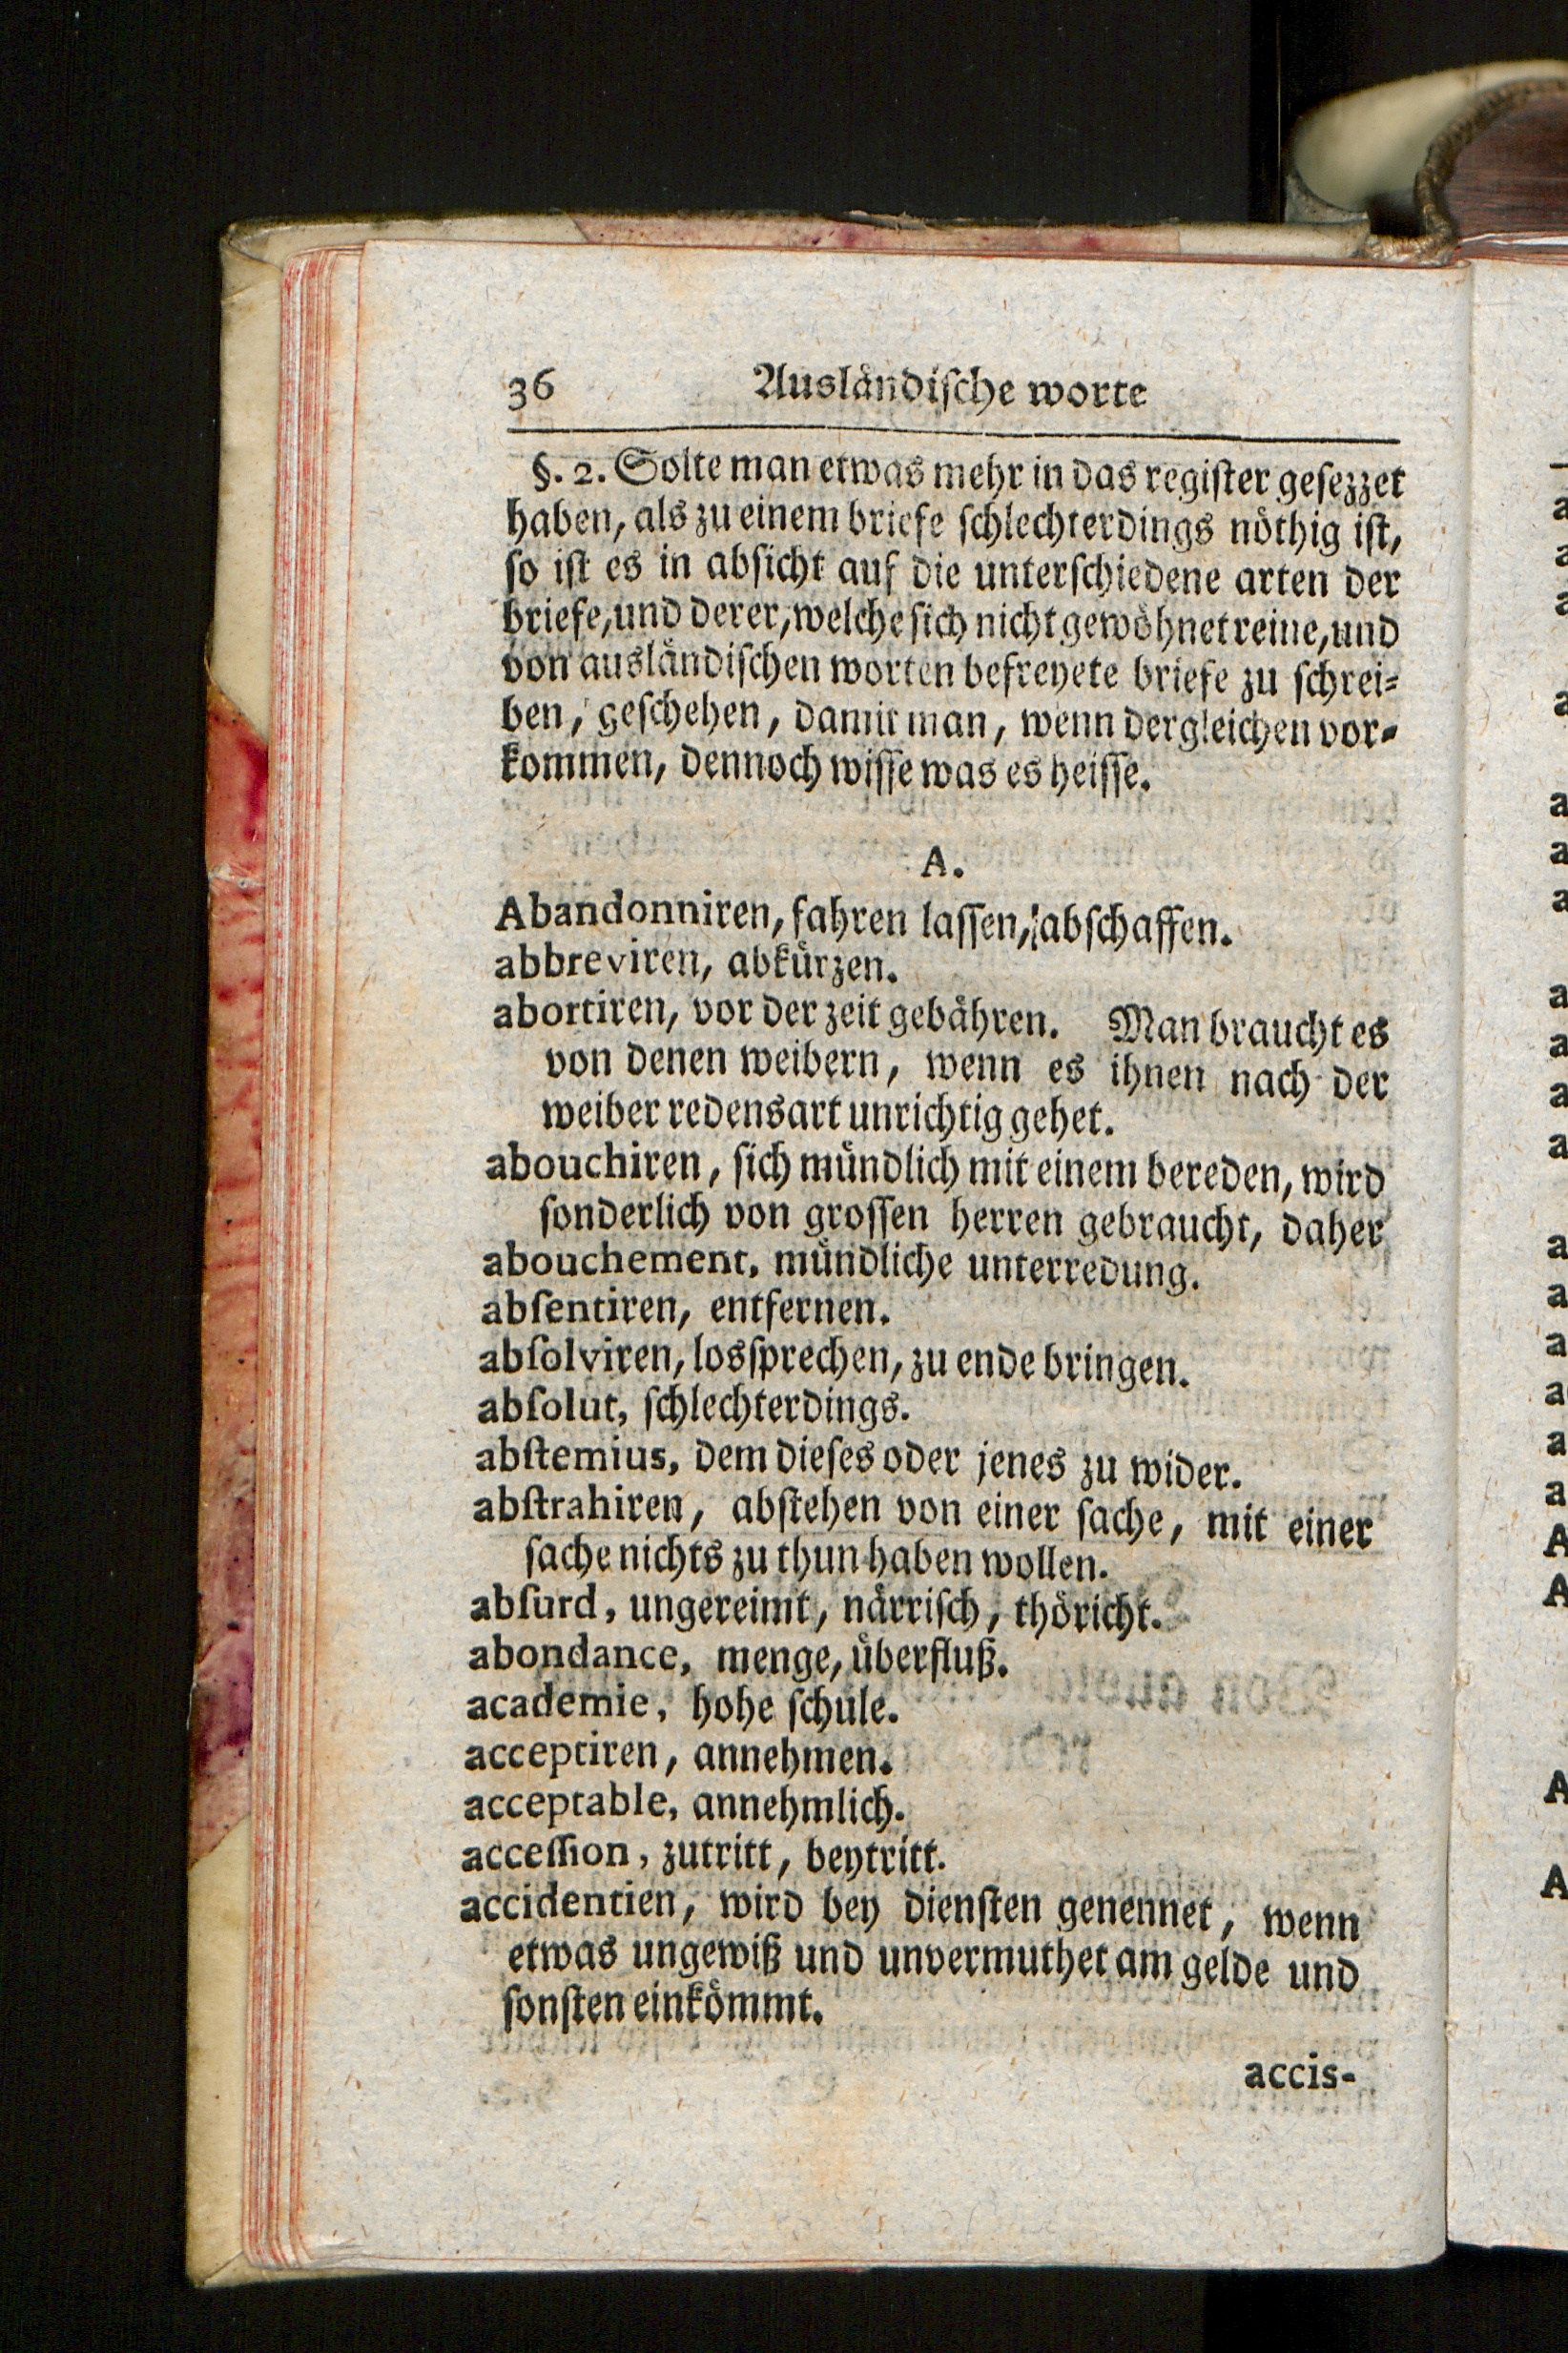 36 Ausländische worte
§. 2. Solte man etwas mehr in das register gesezzet
haben, als zu einem briefe schlechterdings nöthig ist,
so ist es in absicht auf die unterschiedene arten der
briefe, und derer, welche sich nicht gewöhnet reine, und
von ausländischen worten befreyete briefe zu schrei-
ben, geschehen, damit man, wenn dergleichen vor-
kommen, dennoch wisse was es heisse.
A.
Abandonniren, fahren lassen, abschaffen.
abbreviren, abkürzen.
abortiren, vor der zeit gebähren. Man braucht es
von denen weibern, wenn es ihnen nach der
weiber redensart unrichtig gehet.
abouchiren, sich mündlich mit einem bereden, wird
sonderlich von grossen herren gebraucht, daher
abouchement, mündliche unterredung.
absentiren, entfernen.
absolviren, lossprechen, zu ende bringen.
absolut, schlechterdings.
abstemius, dem dieses oder jenes zu wider.
abstrahiren, abstehen von einer sache, mit einer
sache nichts zu thun haben wollen.
absurd, ungereimt, närrisch, thöricht.
abondance, menge, überfluß.
academie, hohe schule.
acceptiren, annehmen.
acceptable, annehmlich.
accession, zutritt, beytritt.
accidentien, wird bey diensten genennet, wenn
etwas ungewiß und unvermuthet am gelde und
sonsten einkömmt.
accis-